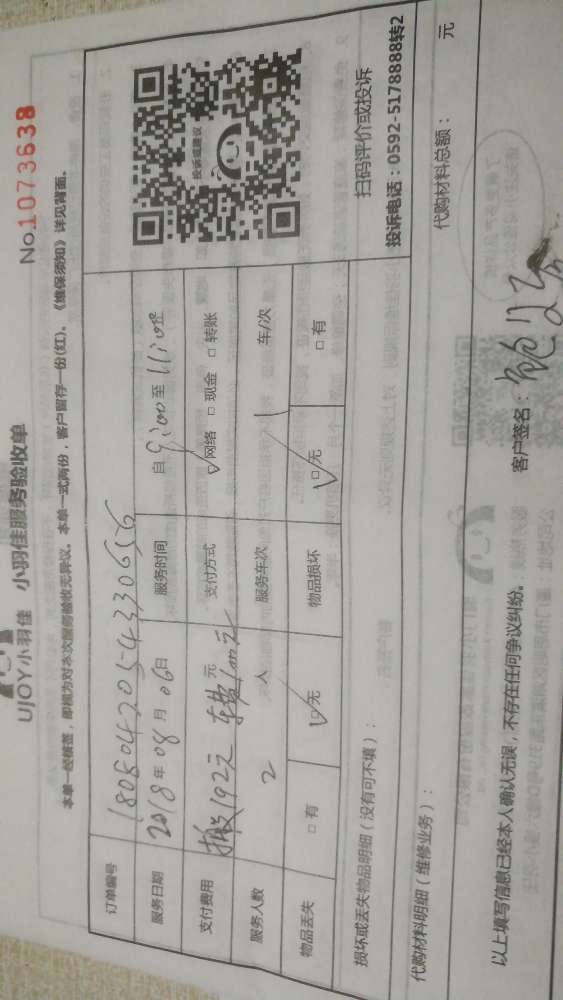 UJOY小羽佳 小羽佳服务验收单
No.1073638
本单一经核签，即视为对本次服务验收无异议。本单一式两份，客户留存一份(红)。《维保须知》详见背面。
订单编号 180804205433065
服务日期 2018年08月06日 服务时间 自9:00至11:00
支付费用 搬192元 车费100元 元 支付方式 网络 □现金 □转账
服务人数 2 人 服务车次 1 车/次
物品丢失 □有 □无 物品损坏 □无 □有
投诉或建议
扫码评价或投诉
投诉电话：0592-5178888转2
损坏或丢失物品明细（没有可不填）：
代购材料明细（维修业务）： 代购材料总额： 元
以上填写信息已经本人确认无误，不存在任何争议纠纷。 客户签名：